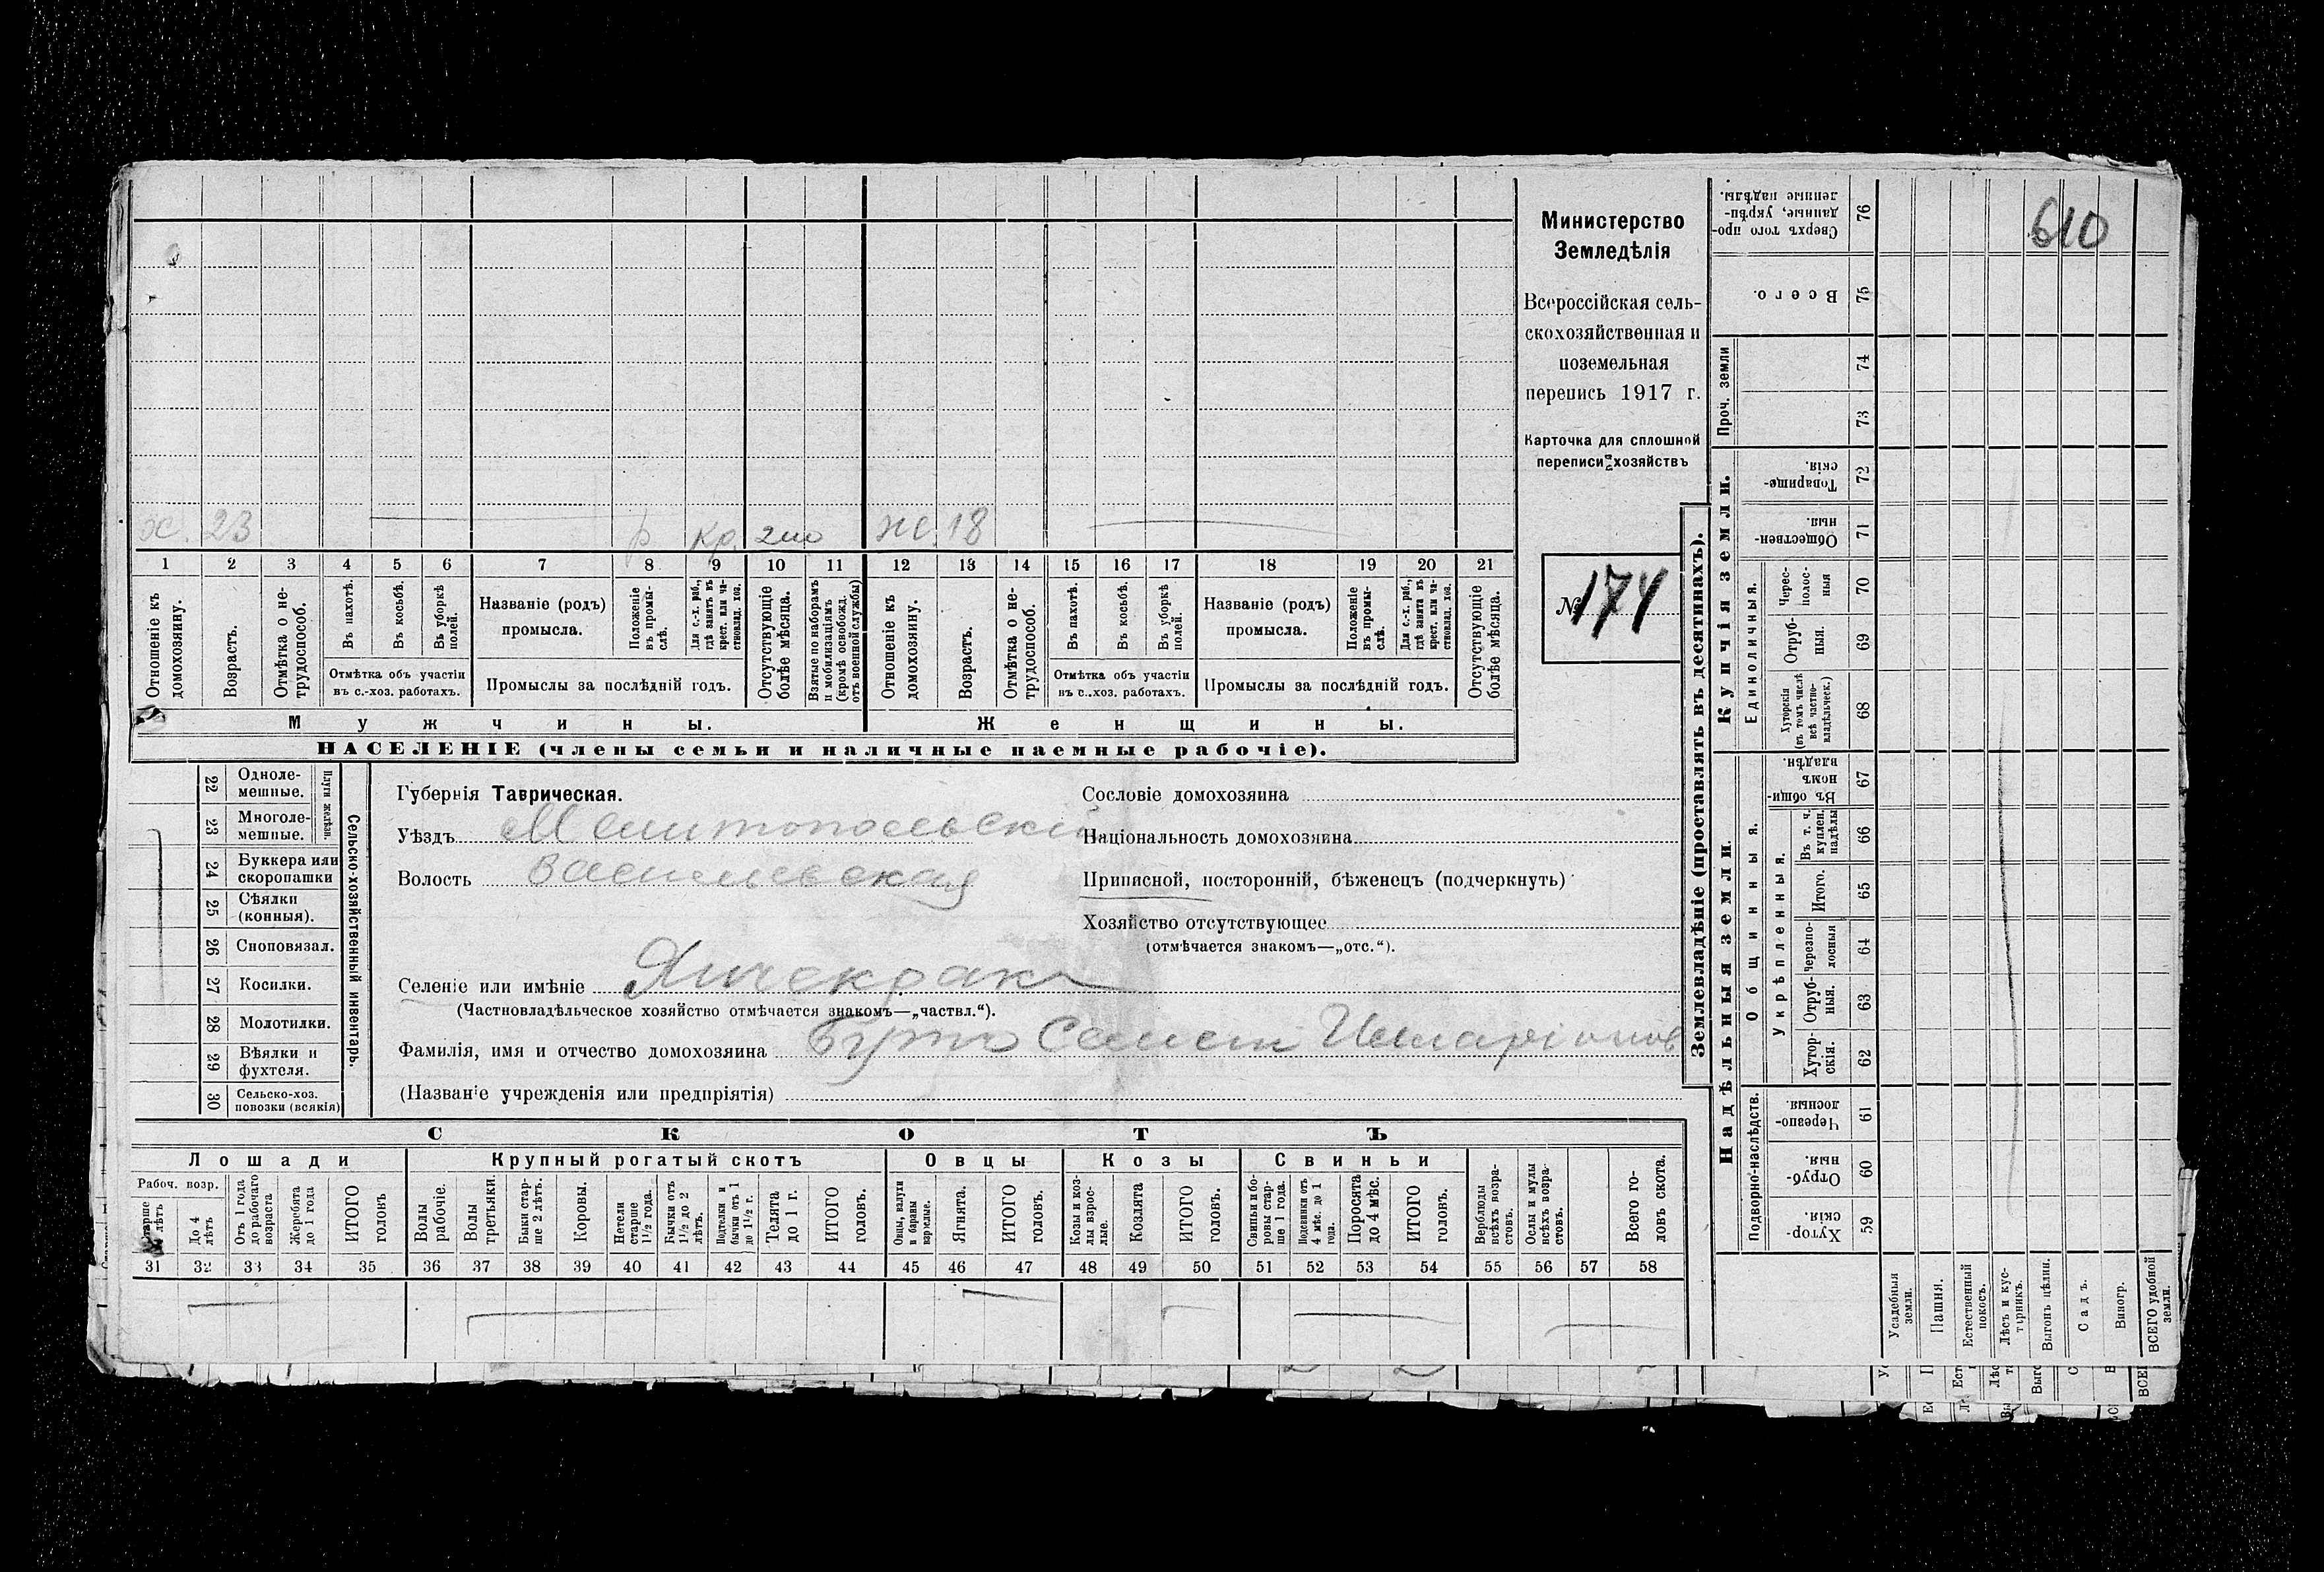 610
Министерство
Земледѣлія
Всероссійская сель-
скохозяйственная и
поземельная
перепись 1917 г.
Карточка для сплошной
переписи хозяйствъ
№ 174
х. 23 р кр. 2 мо ж. 18
1 2 3 4 5 6 7 8 9 10 11 12 13 14 15 16 17 18 19 20 21
Отношеніе къ домохозяину.
Возрастъ.
Отмѣтка о не-трудоспособ.
Въ пахотѣ.
Въ косьбѣ.
Въ уборкѣ полей.
Отмѣтка объ участіи
въ с.-хоз. работахъ.
Названіе (родъ)
промысла.
Положеніе въ промы-слѣ.
Для с.-х. раб., гдѣ занятъ въ крест. или ча-стновлад. хоз.
Промыслы за послѣдній годъ.
Отсутствующіе болѣе мѣсяца.
Взятые по наборамъ и мобилизаціямъ (кромѣ освобожд. отъ военной службы)
Отношеніе къ домохозяину.
Возрастъ.
Отмѣтка о не-трудоспособ.
Въ пахотѣ.
Въ косьбѣ.
Въ уборкѣ полей.
Отмѣтка объ участіи
въ с.-хоз. работахъ.
Названіе (родъ)
промысла.
Положеніе въ промы-слѣ.
Для с.-х. раб., гдѣ занята въ крест. или ча-стновлад. хоз.
Промыслы за послѣдній годъ.
Отсутствующіе болѣе мѣсяца.
Мужчины. Женщины.
НАСЕЛЕНІЕ (члены семьи и наличные наемные рабочіе).
Сельско-хозяйственный инвентарь.
Плуги желѣзн.
22 Одноле-мешные.
23 Многоле-мешные.
24 Буккера или скоропашки
25 Сѣялки (конныя).
26 Сноповязал.
27 Косилки.
28 Молотилки.
29 Вѣялки и фухтеля.
30 Сельско-хоз. повозки (всякія)
Губернія Таврическая.
Уѣздъ Мелитопольскій
Волость Васильевская
Сословіе домохозяина
Національность домохозяина
Приписной, посторонній, бѣженецъ (подчеркнуть)
Хозяйство отсутствующее
(отмѣчается знакомъ—„отс.“).
Селеніе или имѣніе Янчекракъ
(Частновладѣльческое хозяйство отмѣчается знакомъ—„частвл.“).
Фамилія, имя и отчество домохозяина Семен Илларіонов
(Названіе учрежденія или предпріятія)
СКОТЪ
Лошади Крупный рогатый скотъ Овцы Козы Свиньи
Рабоч. возр.
Старше 4 лѣтъ
До 4 лѣтъ
Отъ 1 года до рабочаго возраста
Жеребята до 1 года
ИТОГО головъ
Волы рабочіе.
Волы третьяки.
Быки стар-ше 2 лѣтъ.
Коровы.
Нетели старше 1½ года.
Бычки отъ 1½ до 2 лѣтъ.
Подтелки и бычки отъ 1 до 1½ г.
Телята до 1 г.
ИТОГО головъ.
Овцы, валухи и бараны взрослые.
Ягнята.
ИТОГО головъ.
Козы и коз-лы взрос-лые.
Козлята
ИТОГО головъ.
Свиньи и бо-ровы стар-ше 1 года.
Подсвинки отъ 4 мѣс. до 1 года.
Поросята до 4 мѣс.
ИТОГО головъ.
Верблюды всѣхъ возра-стовъ.
Ослы и мулы всѣхъ возра-стовъ.
Всего го-ловъ скота.
31 32 33 34 35 36 37 38 39 40 41 42 43 44 45 46 47 48 49 50 51 52 53 54 55 56 57 58
Землевладѣніе (проставлять въ десятинахъ).
Надѣльныя земли.
Купчія земли.
Проч. земли
Подворно-наслѣдств.
Общинныя.
Укрѣпленныя.
Единоличныя.
Сверхъ того про-данные, укрѣп-ленные надѣлы. 76
Всего. 75
74
73
Товарище-скія. 72
Обществен-ныя. 71
Черес-полос-ныя 70
Отруб-ныя. 69
Хуторскія (въ томъ числѣ всѣ частно-владѣльческ.) 68
Въ общи-номъ владѣн. 67
Въ т. ч. куплен. надѣлы 66
Итого. 65
Черезпо-лосныя 64
Отруб-ныя. 63
Хутор-скія. 62
Черезпо-лосныя. 61
Отруб-ныя. 60
Хутор-скія. 59
Усадебныя земли.
Пашня.
Естественный покосъ.
Лѣсъ и кус-тарникъ.
Выгонъ цѣлин.
Садъ.
Виногр.
ВСЕГО удобной земли.